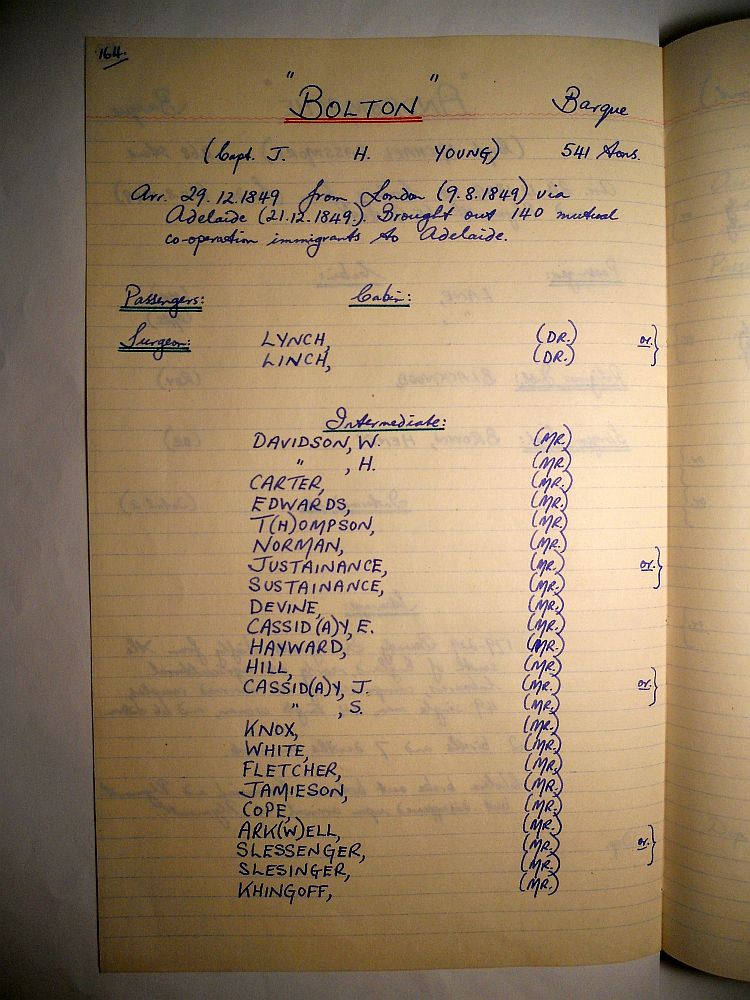 164.
"BOLTON" Barque
(Capt. J. H. YOUNG) 541 tons.
Arr. 29.12.1849 from London (9.8.1849) via
Adelaide (21.12.1849). Brought out 140 mutual
co-operation immigrants to Adelaide.
Passengers: Cabin:
Surgeon: LYNCH, (DR.) or.}
LINCH, (DR.)
Intermediate:
DAVIDSON, W. (MR.)
" , H. (MR.)
CARTER, (MR.)
EDWARDS, (MR.)
T(H)OMPSON, (MR.)
NORMAN, (MR.)
JUSTAINANCE, (MR.) or.}
SUSTAINANCE, (MR.)
DEVINE, (MR.)
CASSID(A)Y, E. (MR.)
HAYWARD, (MR.)
HILL, (MR.)
CASSID(A)Y, J. (MR.) or.}
" , S. (MR.)
KNOX, (MR.)
WHITE, (MR.)
FLETCHER, (MR.)
JAMIESON, (MR.)
COPE, (MR.)
ARK(W)ELL, (MR.)
SLESSENGER, (MR.) or.}
SLESINGER, (MR.)
KHINGOFF, (MR.)